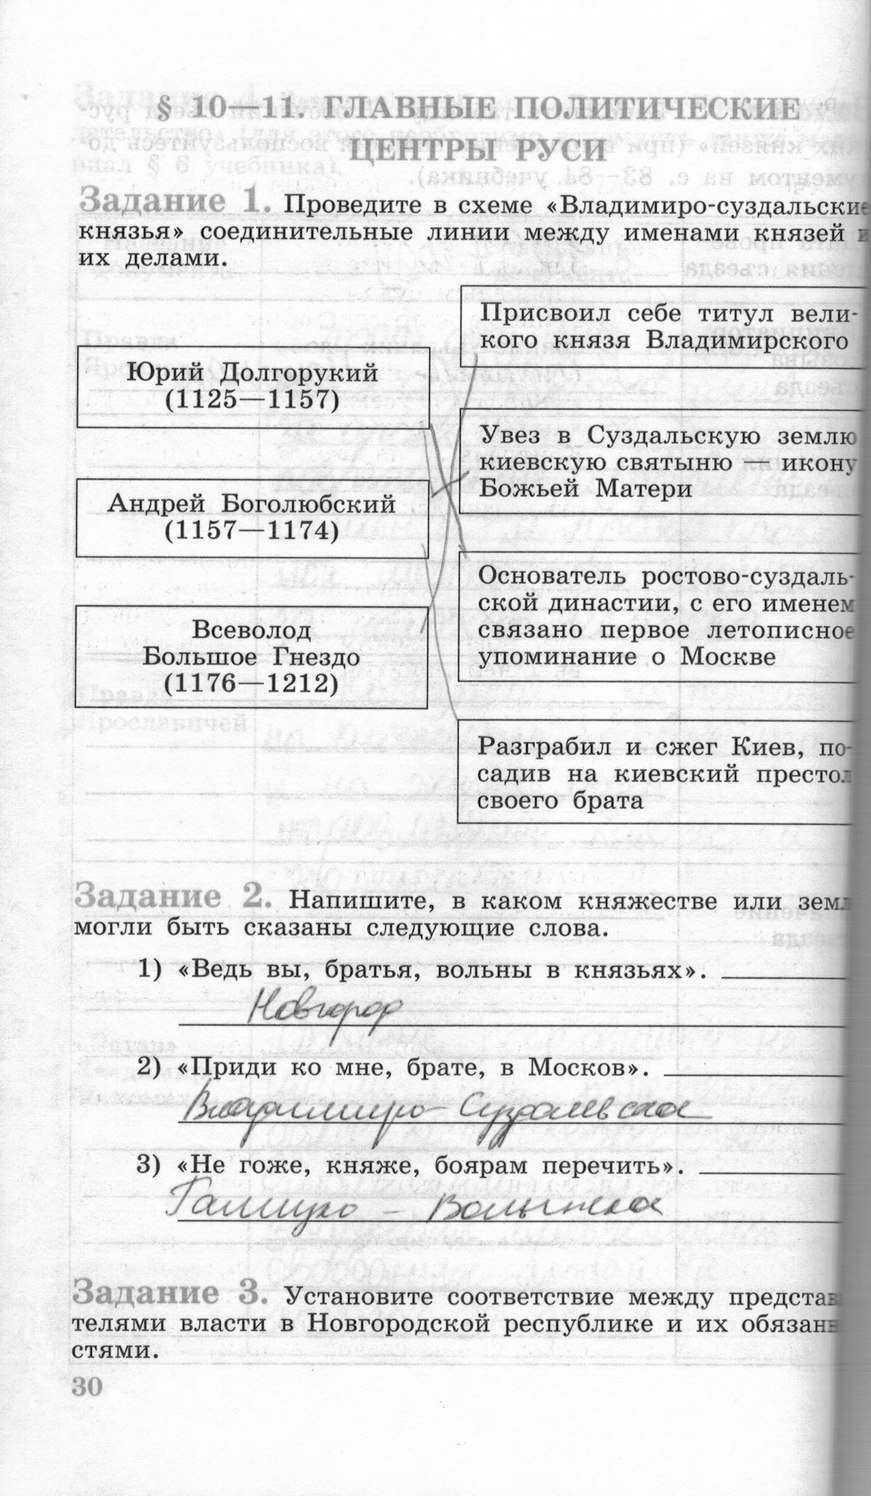 § 10—11. ГЛАВНЫЕ ПОЛИТИЧЕСКИЕ
ЦЕНТРЫ РУСИ
Задание 1. Проведите в схеме «Владимиро-суздальские
князья» соединительные линии между именами князей и
их делами.
Юрий Долгорукий
(1125—1157)
Андрей Боголюбский
(1157—1174)
Всеволод
Большое Гнездо
(1176—1212)
Присвоил себе титул вели-
кого князя Владимирского
Увез в Суздальскую землю
киевскую святыню — икону
Божьей Матери
Основатель ростово-суздаль-
ской династии, с его именем
связано первое летописное
упоминание о Москве
Разграбил и сжег Киев, по-
садив на киевский престол
своего брата
Задание 2. Напишите, в каком княжестве или зем
могли быть сказаны следующие слова.
1) «Ведь вы, братья, вольны в князьях».
Новгород
2) «Приди ко мне, брате, в Москов».
Владимиро-Суздальская
3) «Не гоже, княже, боярам перечить».
Галицко - Волынская
Задание 3. Установите соответствие между предста
телями власти в Новгородской республике и их обязан
стями.
30